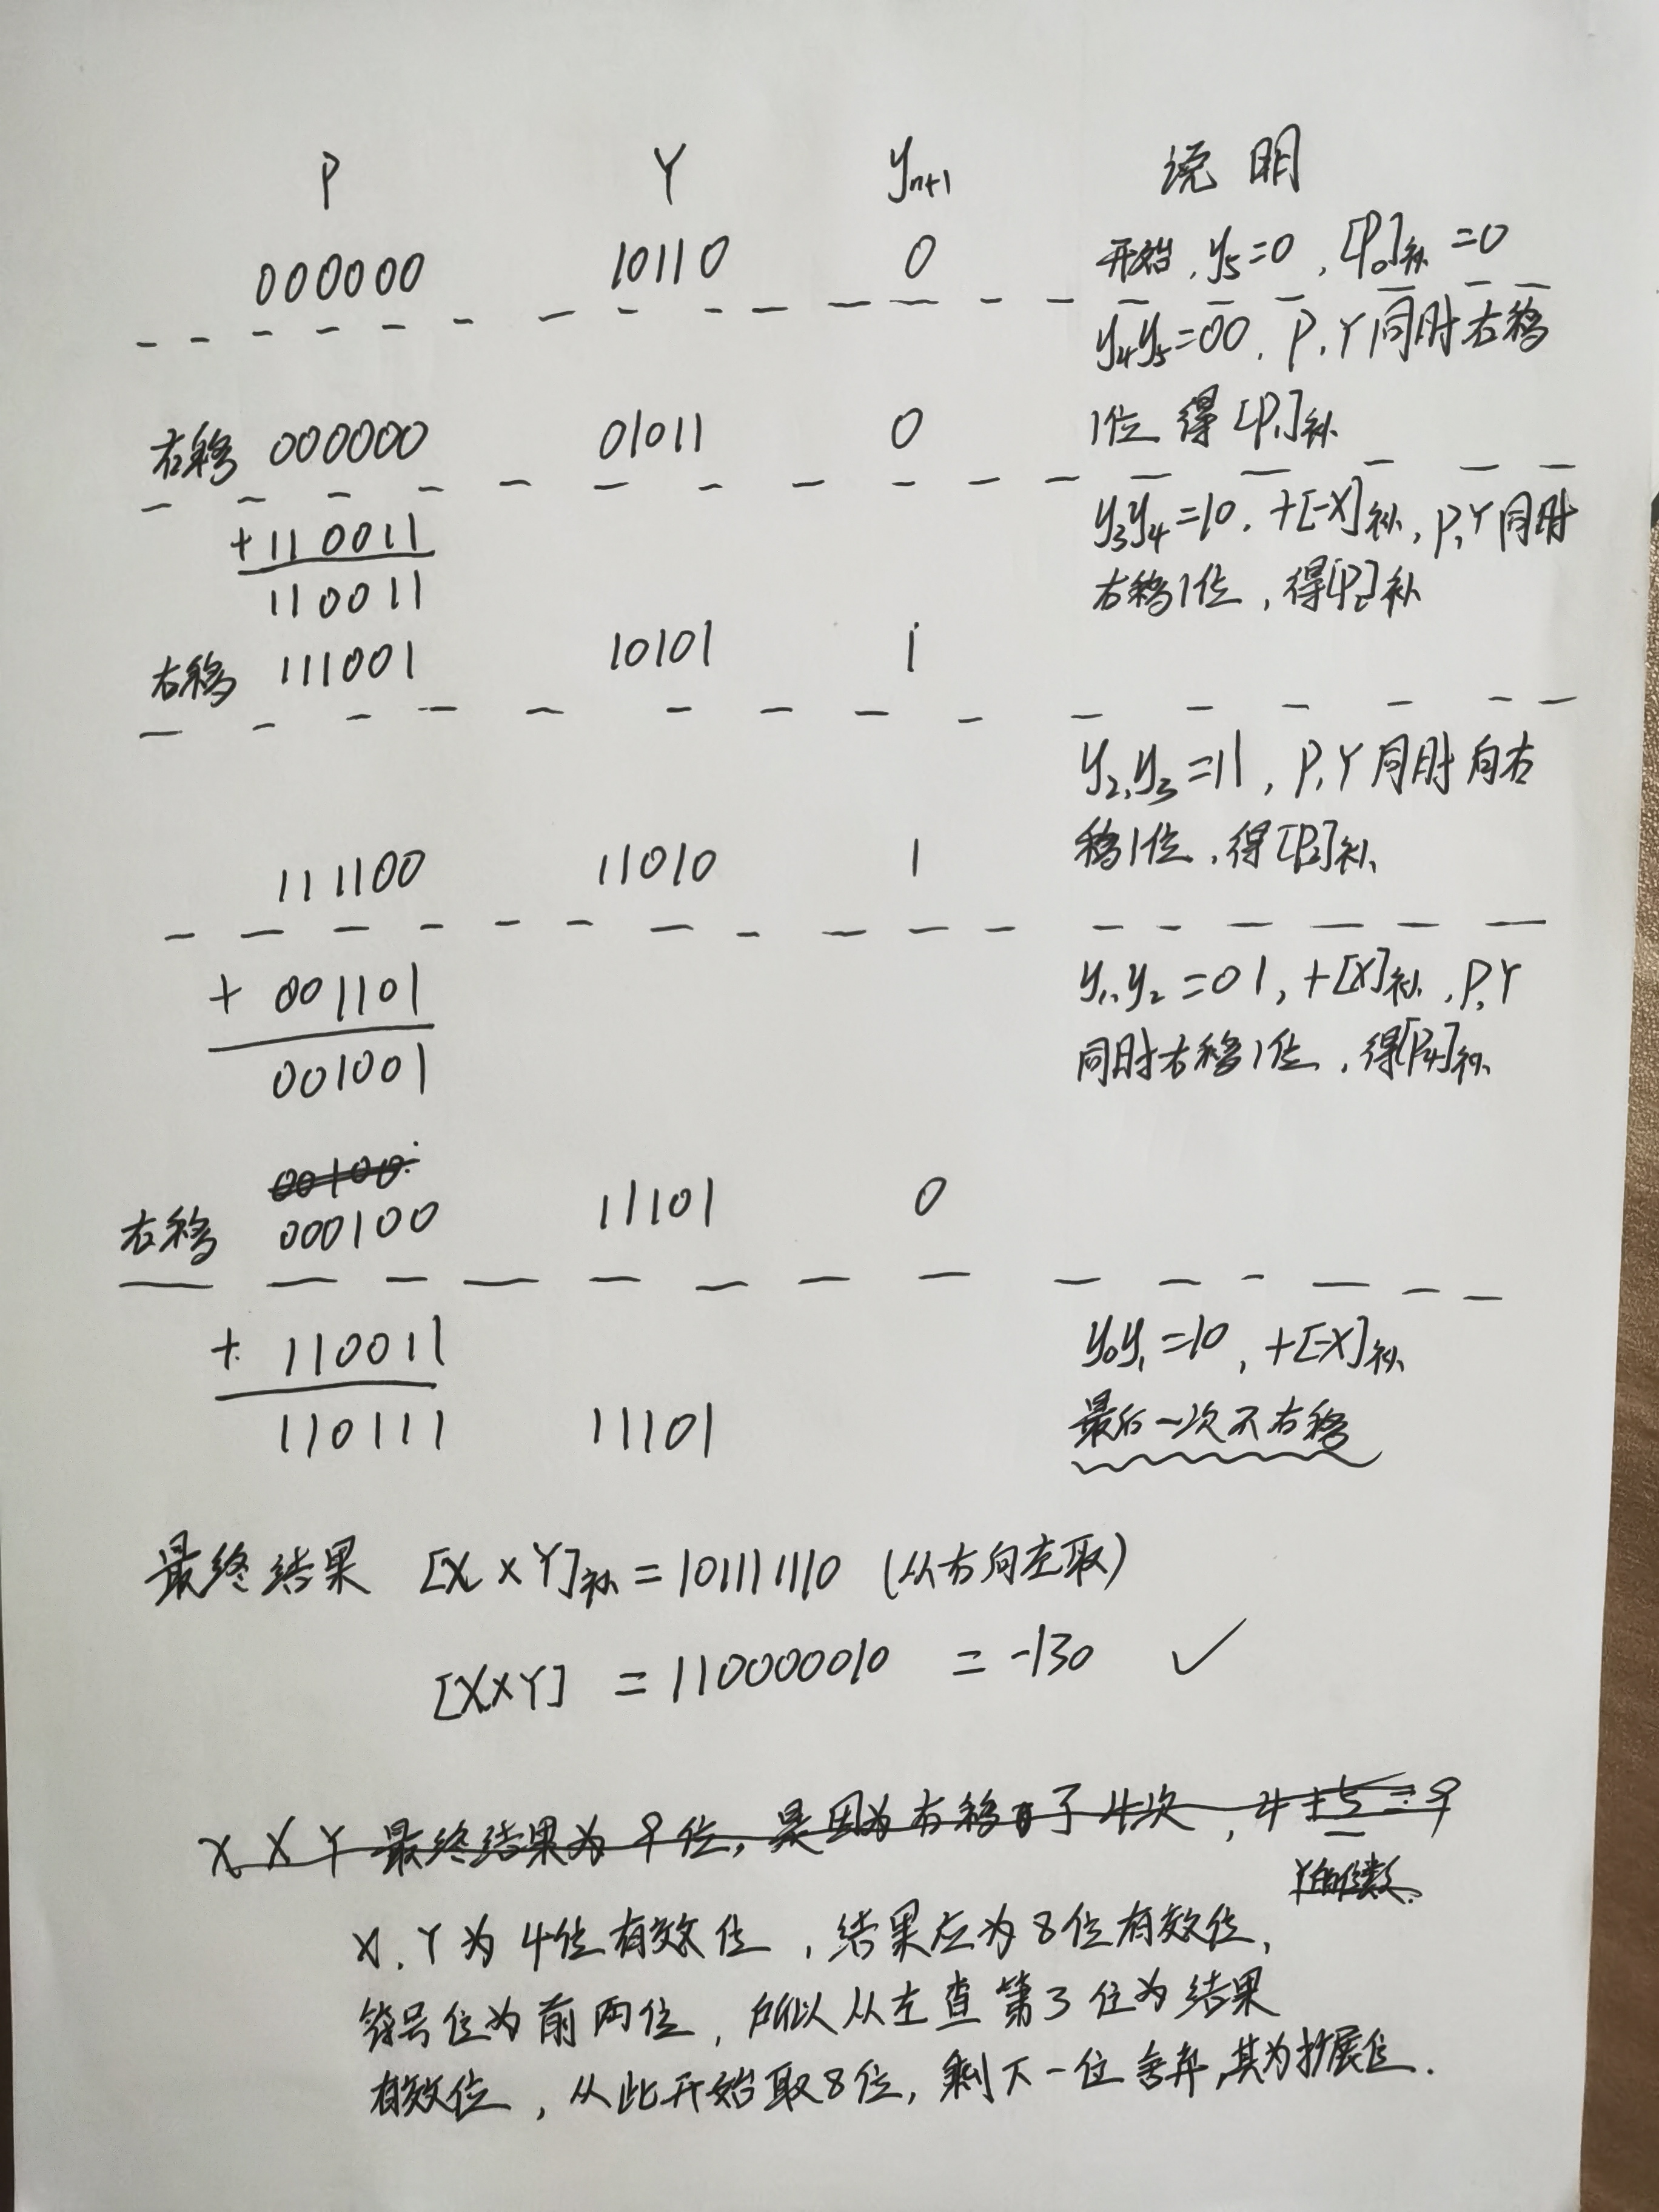 P Y yn+1 说明
000000 10110 0 开始,y5=0,[P0]补=0
y4y5=00,P,Y同时右移
右移 000000 01011 0 1位 得[P1]补
+110011 y3y4=10,+[-X]补,P,Y同时
110011 右移1位,得[P2]补
右移 111001 10101 1
y2,y3=11,P,Y同时向右
111100 11010 1 移1位,得[P3]补
+ 001101 y1,y2=01,+[X]补,P,Y
001001 同时右移1位,得[P4]补
00100
右移 000100 11101 0
+ 110011 y0y1=10,+[-X]补
110111 11101 最后一次不右移
最终结果 [X×Y]补=101111110 (从右向左取)
[X×Y] = 1100000010 = -130 ✓
X×Y 最终结果为9位,是因为右移了4次,4+5=9
Y的位数
X.Y为4位有效位,结果应为8位有效位,
符号位为前两位,所以从左查第3位为结果
有效位,从此开始取8位,剩下一位舍弃,其为扩展位.